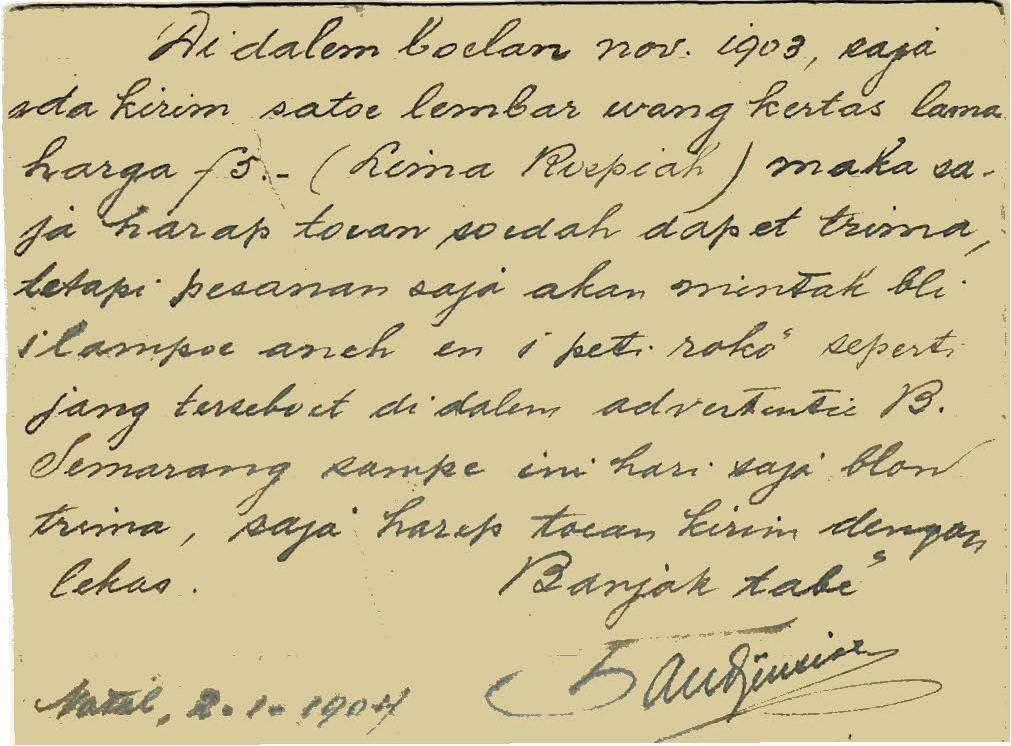 Di dalem boelan nov. 1903, saja
ada kirim satoe lembar uwang kertas lama
harga f 5.- (Lima Roepiah) maka sa-
ja harap toean soedah dapet trima,
tetapi pesanan saja akan mintak bli
1 lampoe aneh en 1 peti roko" seperti
jang terseboet di dalem advertentie B.
Semarang sampe ini hari saja blon
trima, saja harep toean kirim dengan
lekas. Banjak tabe"
Natal, 2-1-1904